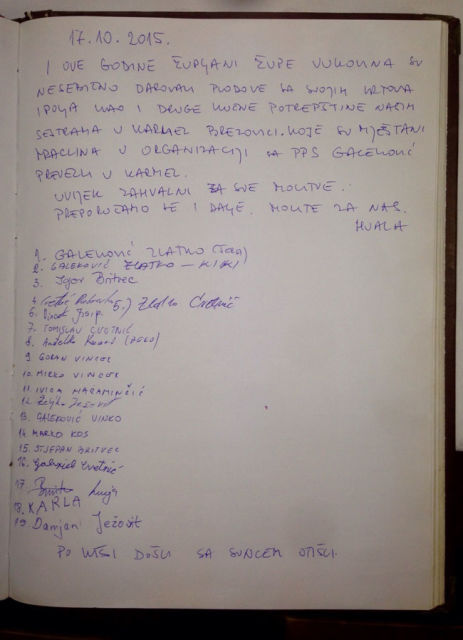 17.10.2015.
I OVE GODINE ŽUPLJANI ŽUPE VUKOVINA SU
NESEBIČNO DAROVALI PLODOVE SA SVOJIH VRTOVA
I POLJA KAO I DRUGE KUĆNE POTREPŠTINE NAŠIM
SESTRAMA U KARMEL BREZOVICI. KOJE SU MJEŠTANI
MRACLINA U ORGANIZACIJI SA PPS GALEKOVIĆ
PREVEZLI U KARMEL.
UVIJEK ZAHVALNI ZA SVE MOLITVE.
PREPORUČAMO SE I DALJE. MOLITE ZA NAS.
HVALA
1. GALEKOVIĆ ZLATKO
2. GALEKOVIĆ ZLATKO – KIKI
3. Igor Britvec
4. 5.) Zlatko Cvetnić
6. Vincek Josip
7. TOMISLAV CVETNIĆ
8. Anđelko
9. GORAN VINCEK
10. MIRKO VINCEK
11. IVICA
12. Željko
13. GALEKOVIĆ VINKO
14. MARKO KOS
15. STJEPAN BRITVEC
16. Gabriel Cvetnić
17. Luija
18. KARLA
19 Damjan Ježovit
PO KIŠI DOŠLI SA SUNCEM OTIŠLI.